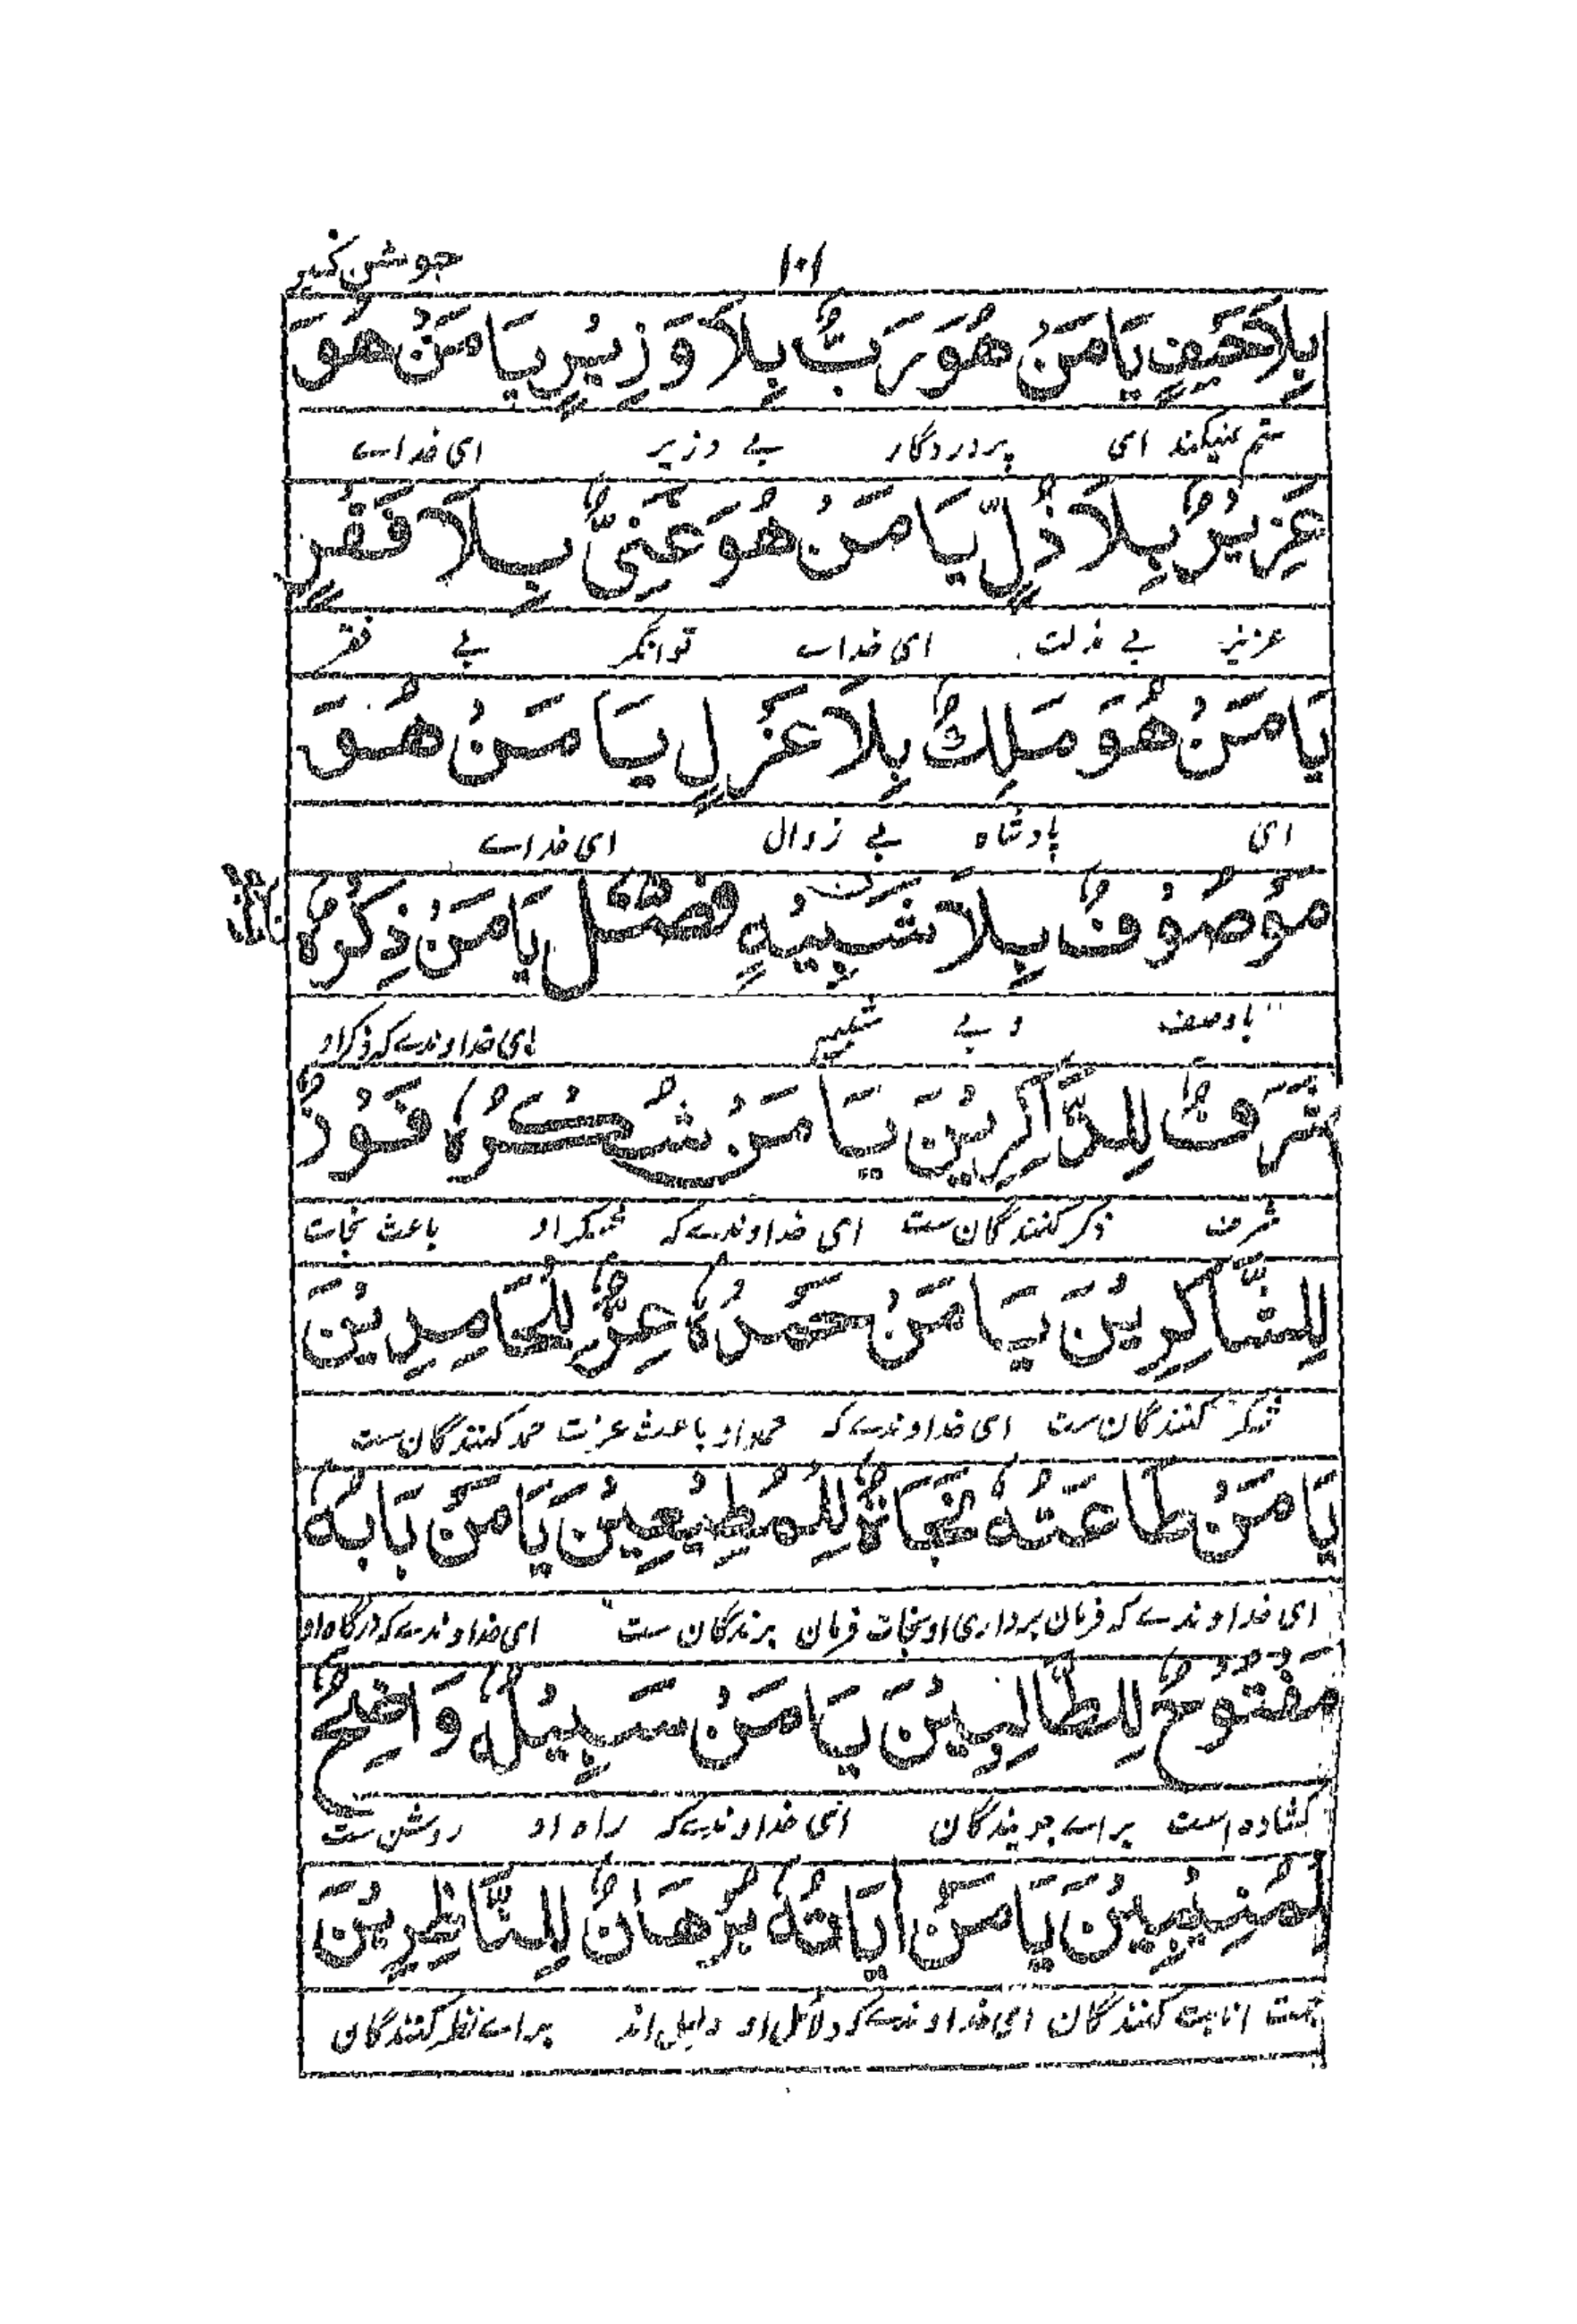 ۱۰۱ جوشن کبیر
بِلَا حَيْفٍ يَا مَنْ هُوَ رَبٌّ بِلَا وَزِيْرٍ يَا مَنْ هُوَ
ستم نمیکند ای پروردگار بے وزیر ای خداے
عَزِيْزٌ بِلَا ذُلٍّ يَا مَنْ هُوَ غَنِيٌّ بِلَا فَقْرٍ
عزیز بے ذلت ای خداے توانگر بے فقر
يَا مَنْ هُوَ مَلِكٌ بِلَا عَزْلٍ يَا مَنْ هُوَ
ای پادشاه بے زوال ای خداے
مَوْصُوْفٌ بِلَا شَبِيْهٍ فصل يَا مَنْ ذِكْرُهٗ
باوصف و بے شبیه ای خداوندے که ذکر او
شَرَفٌ لِلذَّاكِرِيْنَ يَا مَنْ شُكْرُهٗ فَوْزٌ
شرف ذکر کنندگان ست ای خداوندے که شکر او باعث نجات
لِلشَّاكِرِيْنَ يَا مَنْ حَمْدُهٗ عِزٌّ لِلْحَامِدِيْنَ
شکر کنندگان ست ای خداوندے که حمد او باعث عزت حمد کنندگان ست
يَا مَنْ طَاعَتُهٗ نَجَاةٌ لِلْمُطِيْعِيْنَ يَا مَنْ بَابُهٗ
ای خداوندے که فرمان برداری او نجات فرمان برندگان ست ای خداوندے که درگاه او
مَفْتُوْحٌ لِلطَّالِبِيْنَ يَا مَنْ سَبِيْلُهٗ وَاضِحٌ
کشاده است براے جویندگان ای خداوندے که راه او روشن ست
لِلْمُنِيْبِيْنَ يَا مَنْ اٰيَاتُهٗ بُرْهَانٌ لِلنَّاظِرِيْنَ
جهت انابت کنندگان ای خداوندے که دلائل او دلیل اند براے نظر کنندگان